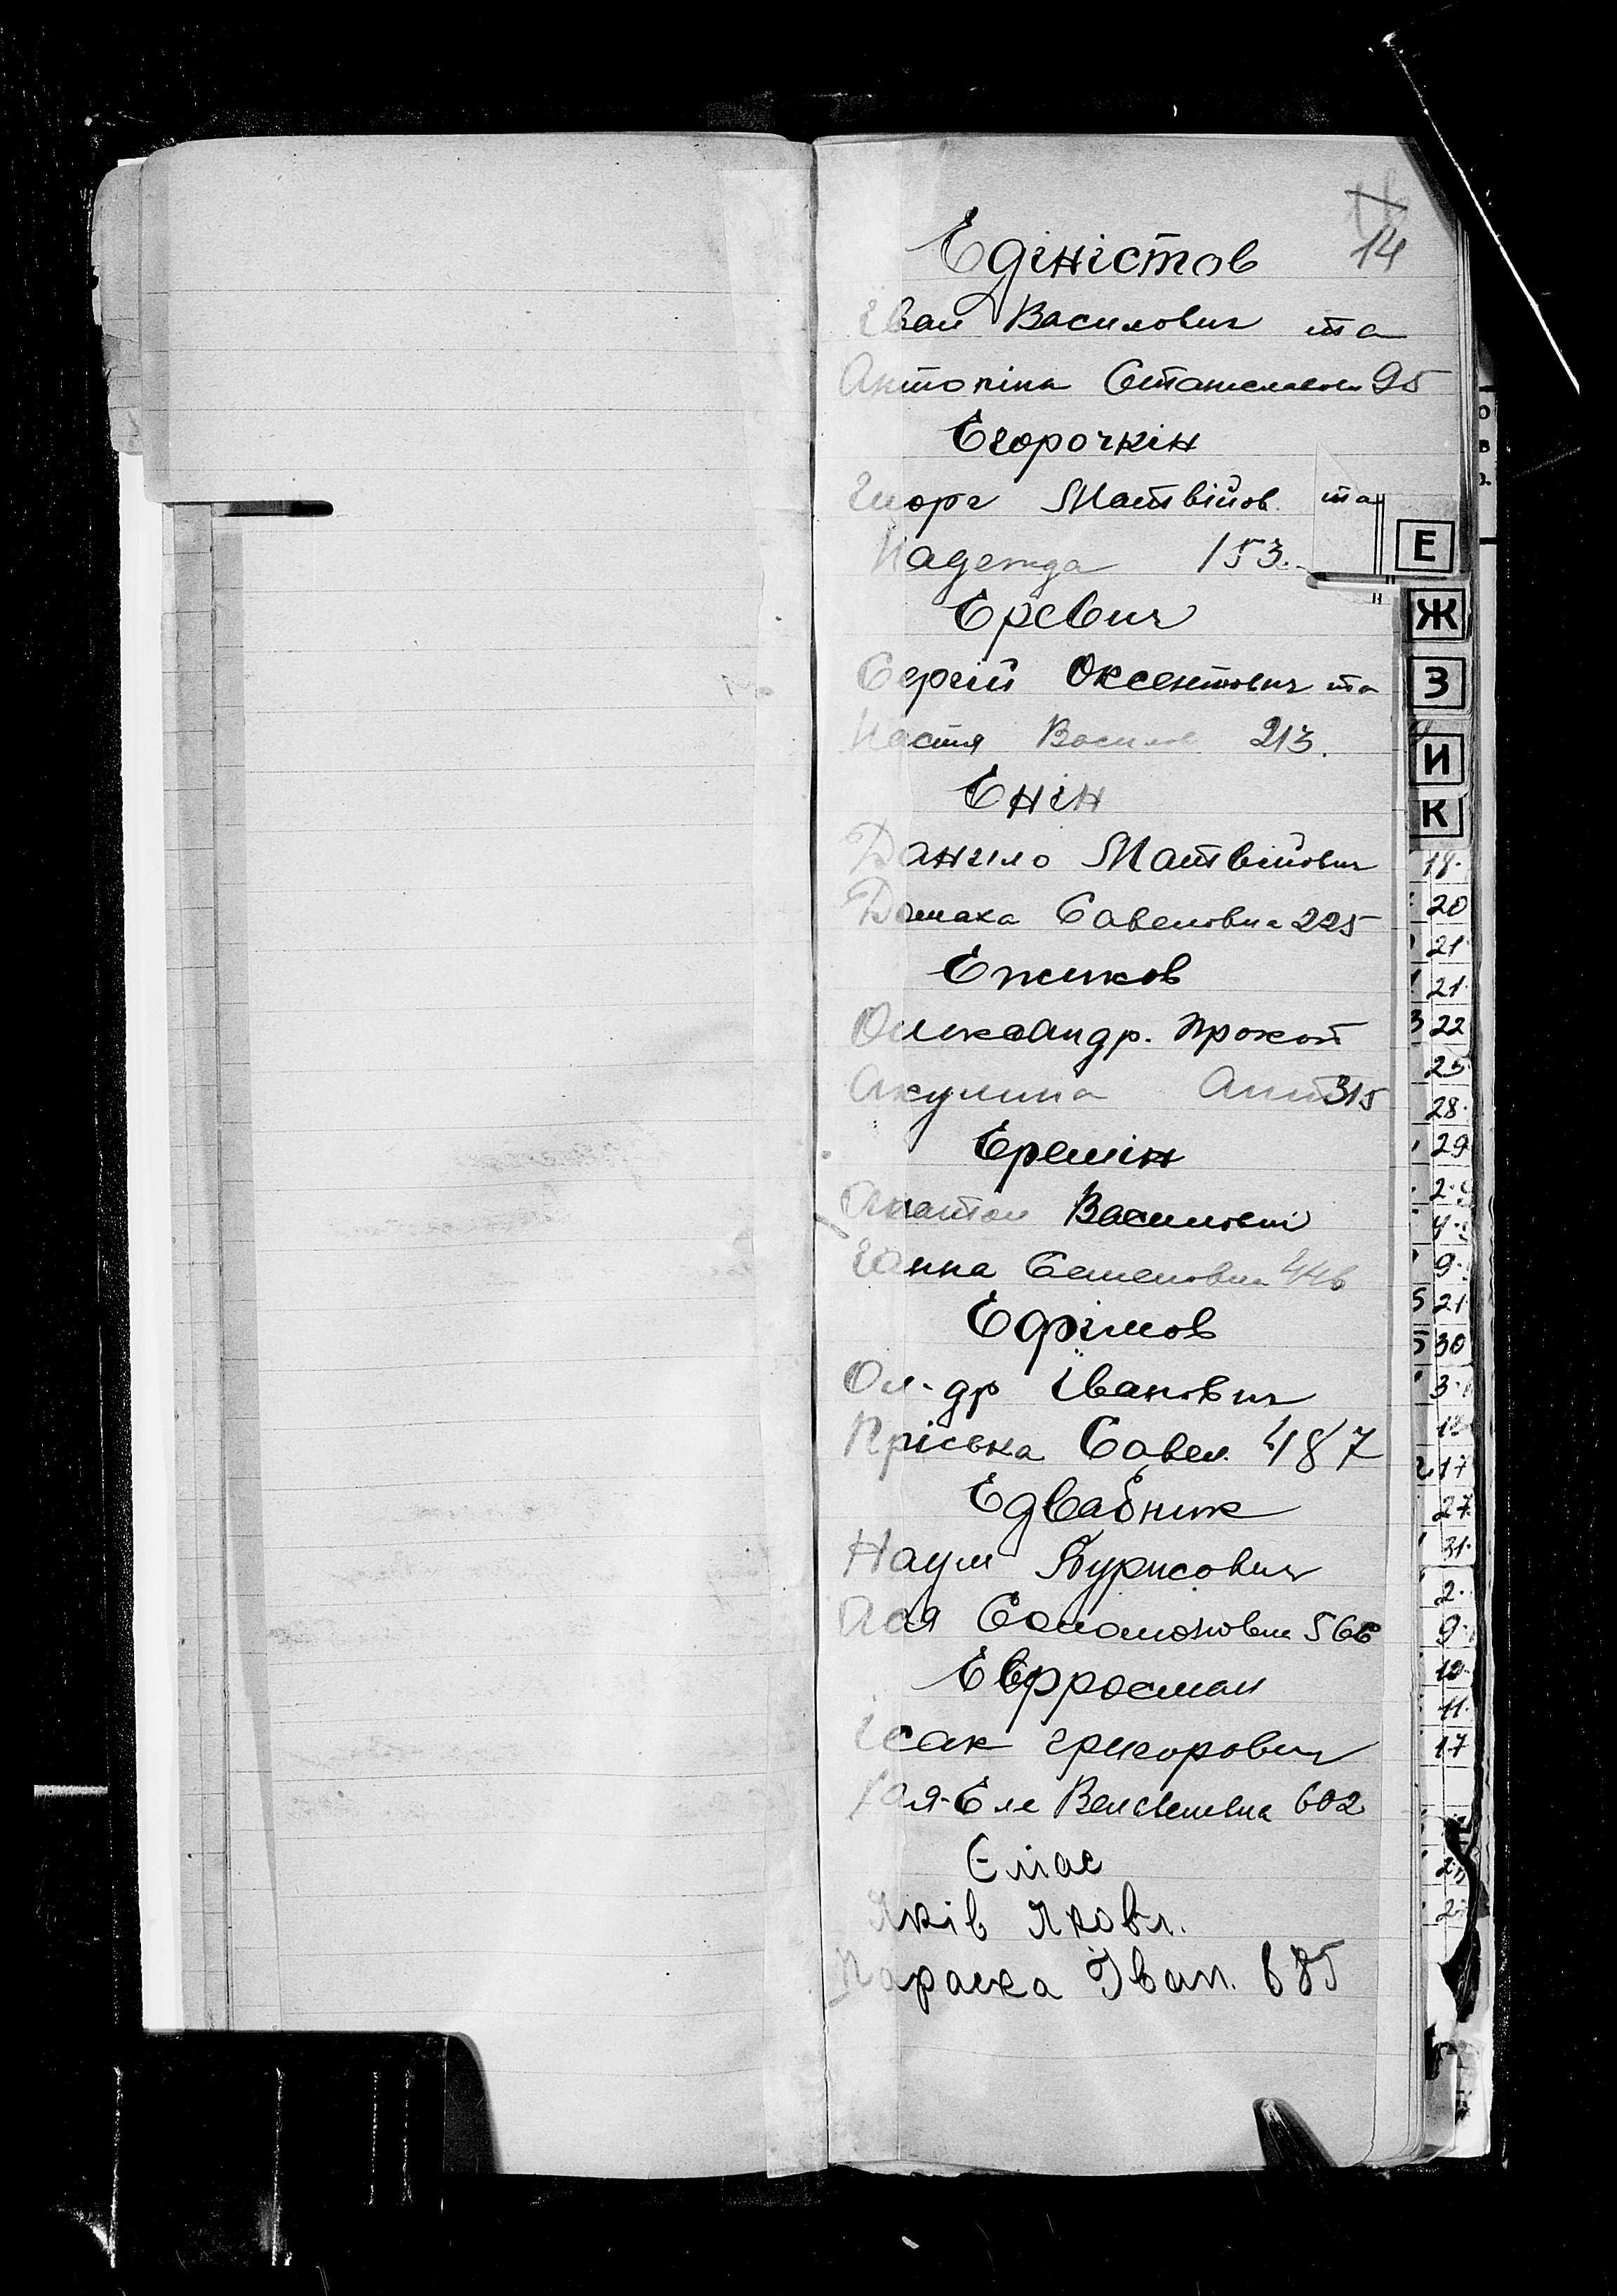 14
Едіністов
Іван Василович та
Антоніна Станиславовн 95
Егорочкін
Ігорг Матвійов. та
Надежда 153.
Ерсвич
Сергій Оксентович та
Настя Василів 213.
Енін
Данило Матвійович
Домаха Савеловна 225
Ежиков
Олександр. Прокоп
Акулина Ант 315
Еремін
Анатол Василович
Ганна Семеновна 446
Ефімов
Ол-др Іванович
Пріська Савел. 487
Едвабник
Наум Бурисович
Ася Соломоновна 566
Евфросман
Ісак Григорович
Єліас
Яків Яковл.
Параска Іван. 685
Е
Ж
З
И
К
18.
20
21
21.
22
25
28.
29
9.
21.
30
3.
17
27.
31.
2.
9.
10.
11.
17